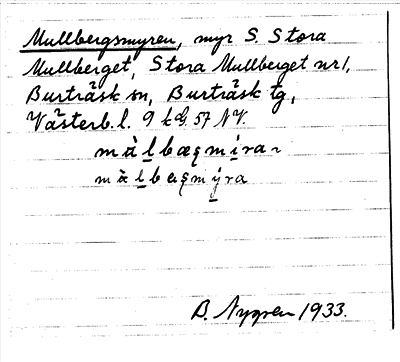 Mullbergsmyren, myr S. Stora
Mullberget, Stora Mullberget nr 1,
Burträsk sn, Burträsk tg,
Västerb. l. 9 k G. 57 NV.
B. Nygren 1933.